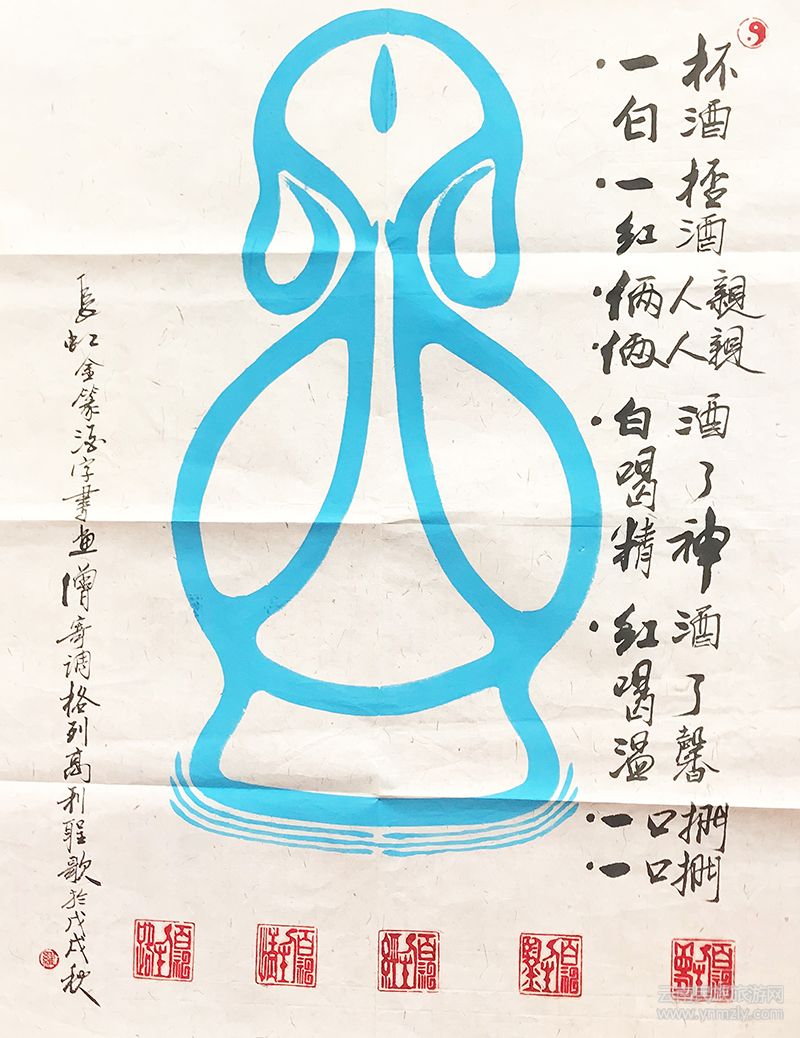 ·一杯
白酒
·一桮
红酒
·俩人親
·俩人親
·白酒
喝了
精神
·红酒
喝了
温馨
·一口
·一口
長虹金篆酒字書画僧寄调格列高利聖歌於戊戌秋
云南民族旅游网
www.ynmzly.com